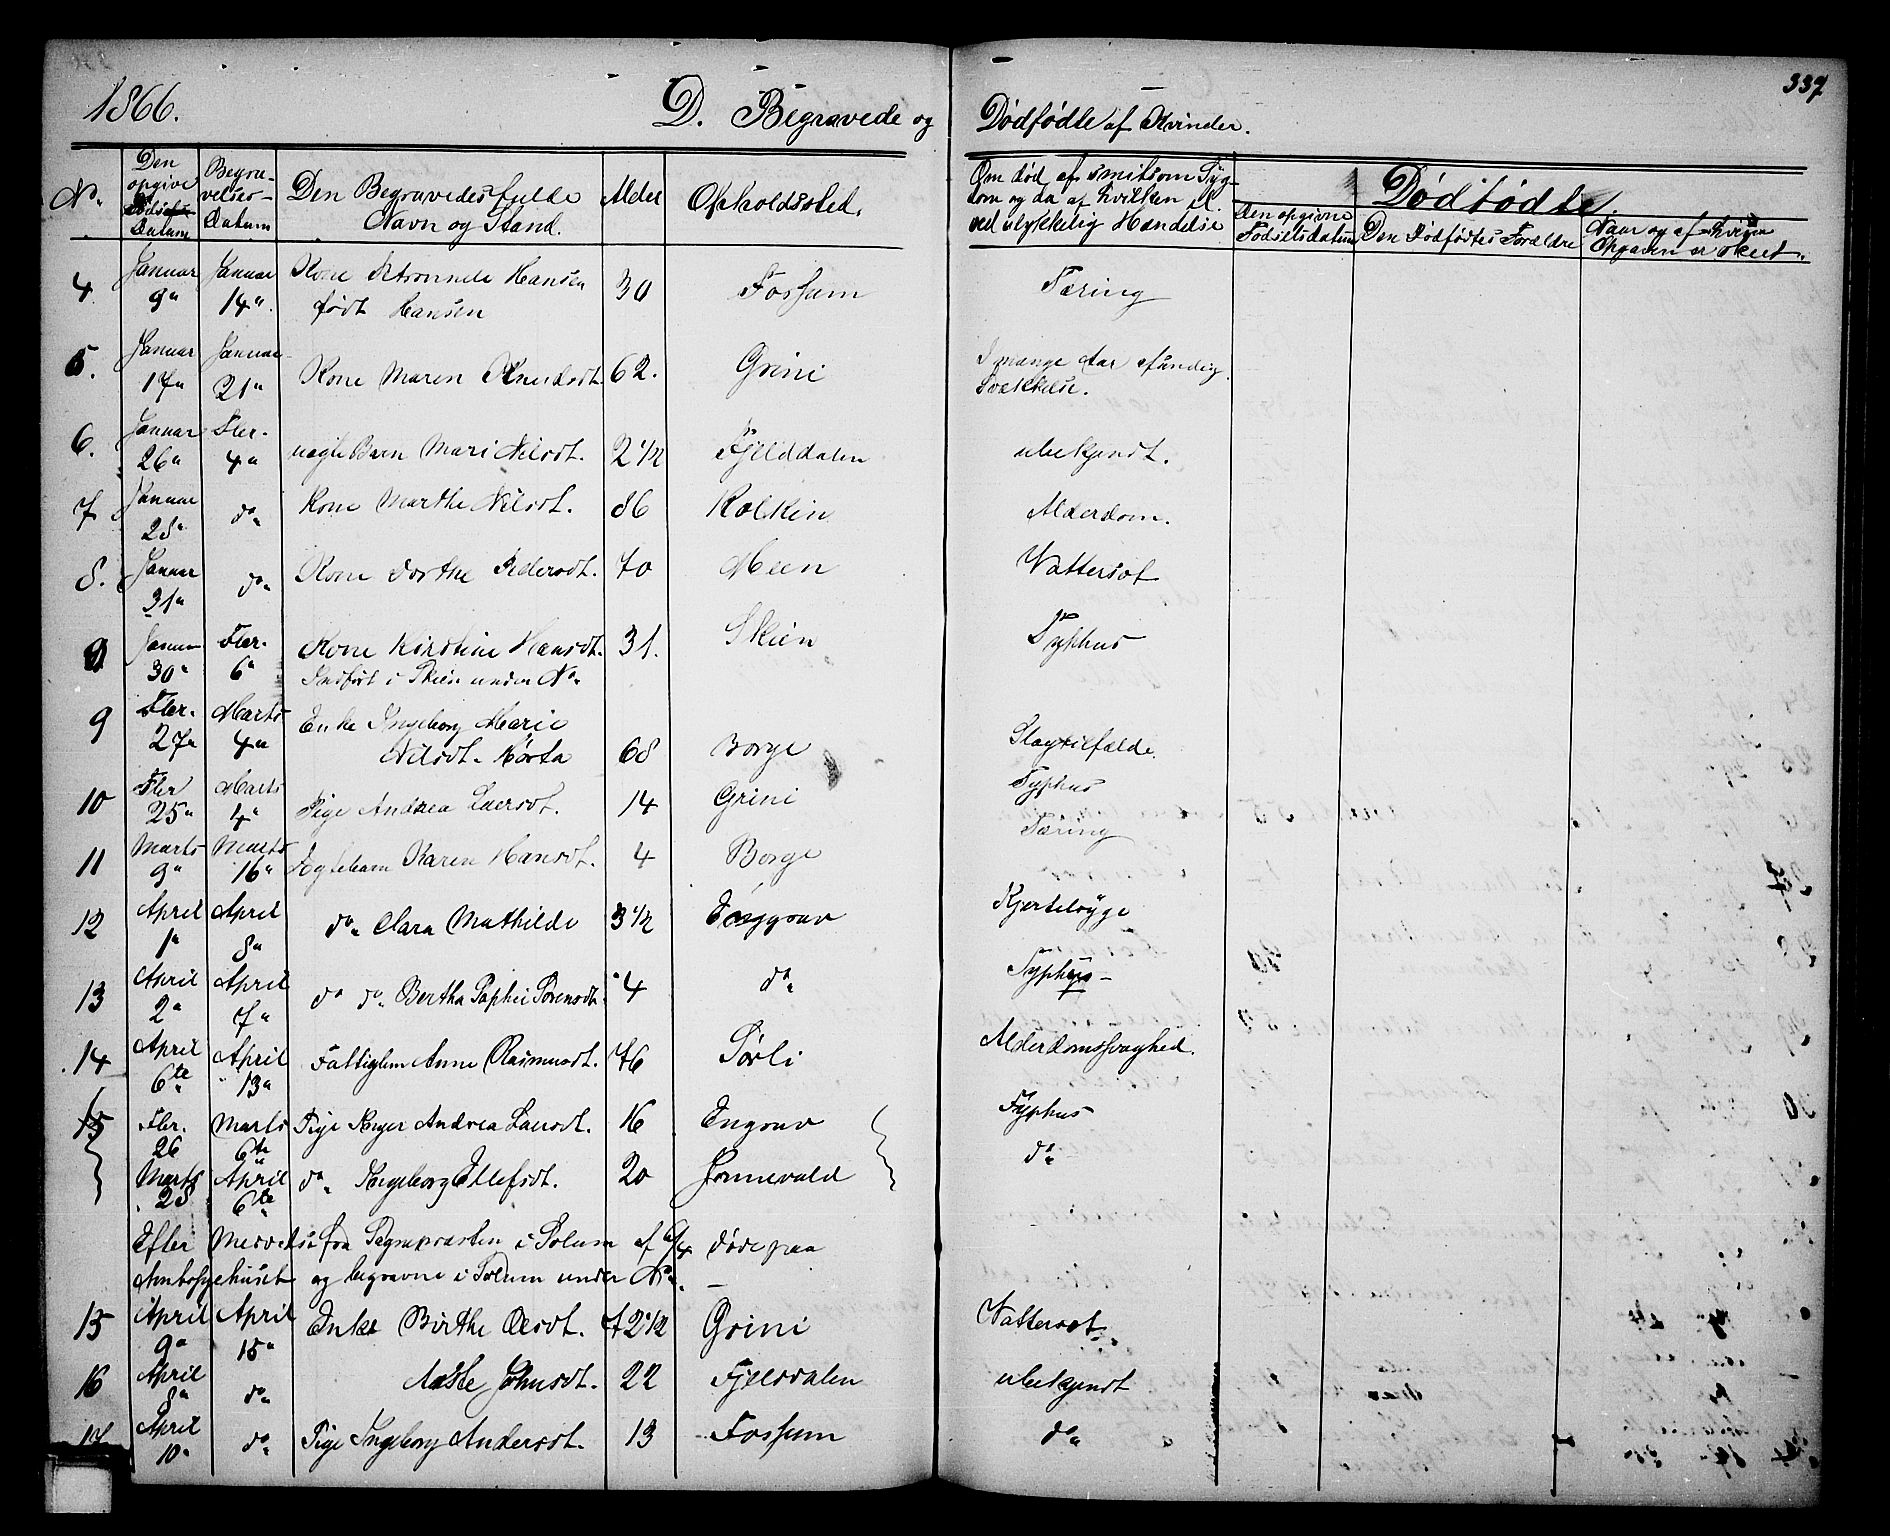 1866.
D. Begravede og Dødfødte af Kvinder.
337
No.
Den opgivne Dødsdatum
Begravelses-Datum
Den Begravedes fulde Navn og Stand.
Alder
Opholdssted.
Om død af smitsom Sygdom og da af hvilken el. ved ulykkelig Hændelse
Dødfødte.
Den opgivne Fødselsdatum
Den Dødfødtes Forældre
Naar og af hvem Opgaven er skeet.
4 Januar 9" Januar 14". Kone Petronnele Hansen 30 Fossum Tæring
født Hansen
5. Januar 17" Januar 21" Kone Maren Knudsdt. 62. Grini I mange Aar sfændig
Svækkelse.
6. Januar 26" Fbr. 4" uægte Barn Mari Nilsdt. 2 1/2 Fjelddalen ubekjendt.
7 Januar 28" do" Kone Marthe Nilsdt. 86 Kolkin Alderdom.
8. Januar 31" do" Kone Dorthe Pedersdt. 70 Meen Vattersot
Januar 30" Fbr. 6" Kone Kirstine Hansdt. 31. Skien Typhus
Indført i Skien under No"
9 Fbr. 27" Marts 4" Enke Ingeborg Marie
Nilsdt. Kørta 68 Borge Slagtilfælde.
10 Fbr 25" Marts 4" Pige Andrea Laersdt. 14 Grini Typhus
11 Marts 9" Marts 16" Ægtebarn Karen Hansdt. 4 Borge Tæring
12 April 1" April 8" do" Clara Mathilde 3 1/2 Enggrav Kjertelsyge
13 April 2" April 7" do do" Bertha Sophie Sørensdt. 4 do" Typhus
14 April 6te April 13" Fattiglem Anne Rasmusdt. 76 Sørli Alderdomssvaghed.
15 Fbr. 26 Marts 6te Pige Inger Andrea Laersdt. 16 Engrav Typhus
Marts 28 April 6te do" Ingeborg Ellefsdt. 20 Jonnevald do"
Efter Meddelse fra Sognepræsten i Solum af 6/4 døde paa
Amtssygehuset og begravne i Solum under No.
15 April 9" April 15" Enke Birthe Olsdt. 72 1/2 Grini Vattersot
16 April 8" do" Aasle Johnsdt. 22 Fjelldalen ubekjendt
17 April 10" do" Pige Ingeborg Andersdt. 13 Fossum do"